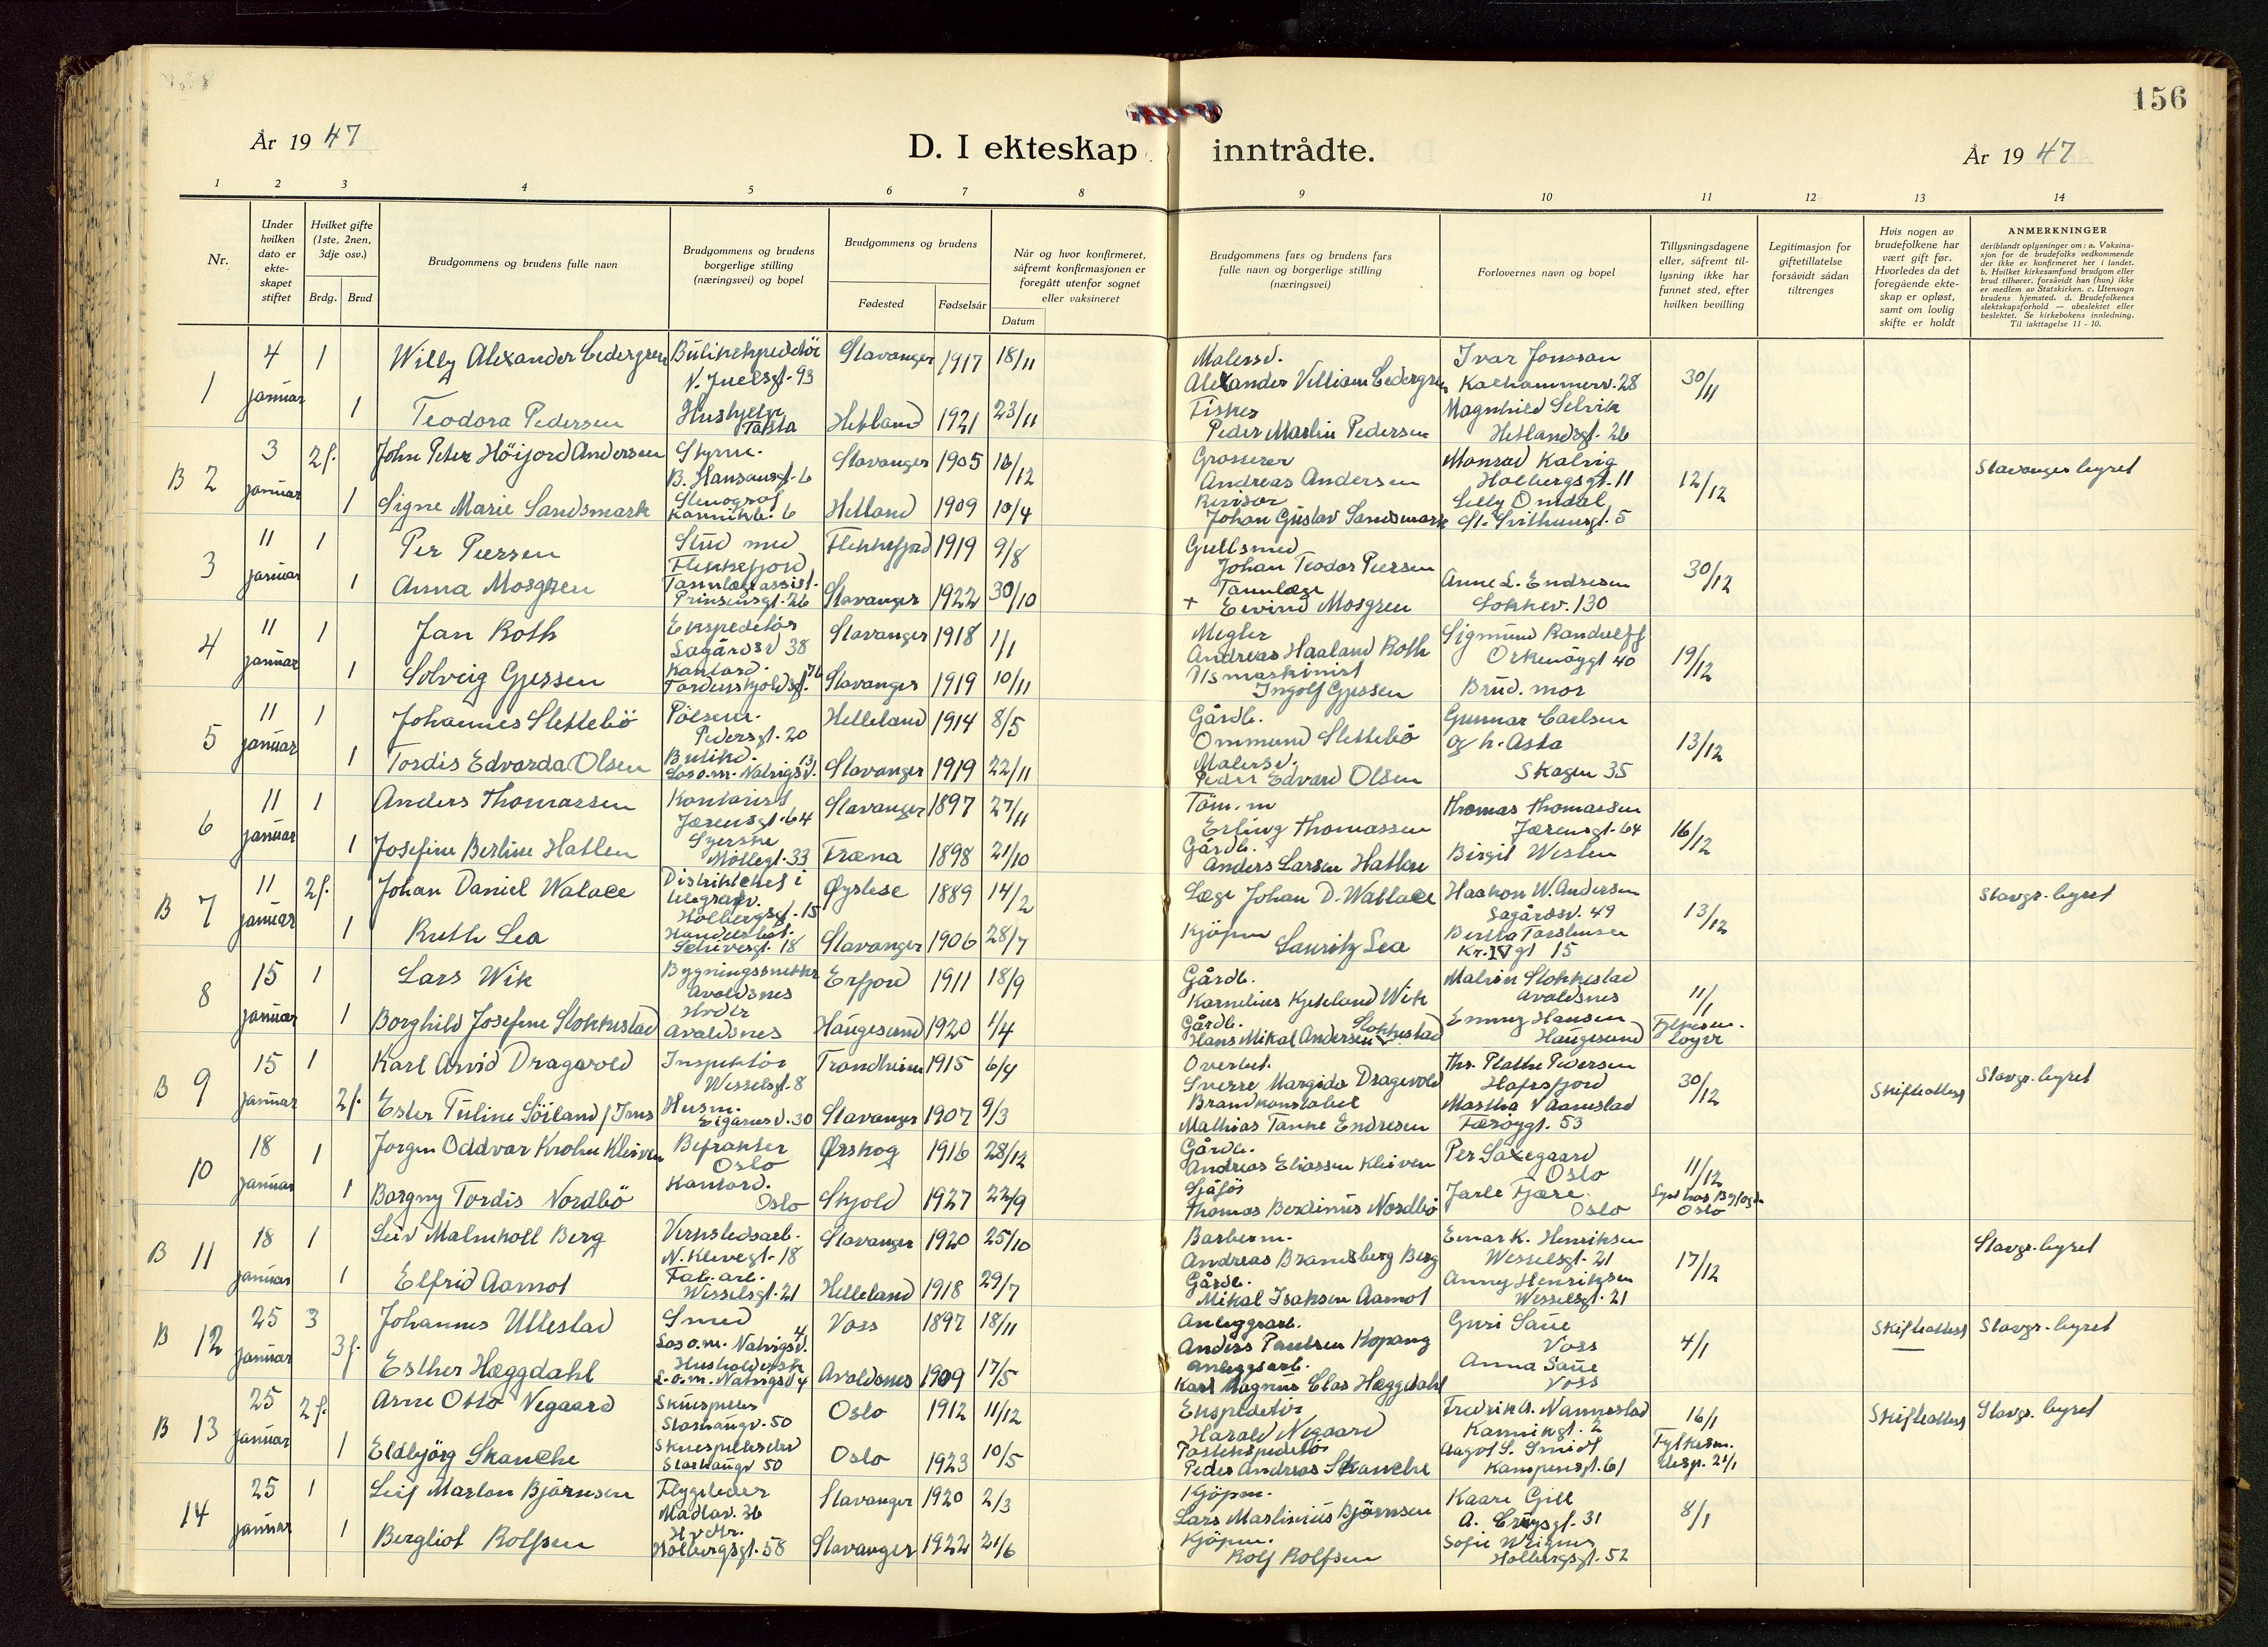 156
År 19 47
D. I ekteskap inntrådte.
År 19 47
1 2 3 4 5 6 7 8 9 10 11 12 13 14
Nr.
Under hvilken dato er ekte-skapet stiftet
Hvilket gifte (1ste, 2nen, 3dje osv.)
Brdg. Brud
Brudgommens og brudens fulle navn
Brudgommens og brudens borgerlige stilling (næringsvei) og bopel
Brudgommens og brudens
Fødested Fødselsår
Når og hvor konfirmeret, såfremt konfirmasjonen er foregått utenfor sognet eller vaksineret
Datum
Brudgommens fars og brudens fars fulle navn og borgerlige stilling (næringsvei)
Forlovernes navn og bopel
Tillysningsdagene eller, såfremt til-lysning ikke har funnet sted, efter hvilken bevilling
Legitimasjon for giftetillatelse forsåvidt sådan tiltrenges
Hvis nogen av brudefolkene har vært gift før. Hvorledes da det foregående ekte-skap er opløst, samt om lovlig skifte er holdt
ANMERKNINGER
deriblandt oplysninger om: a. Vaksina-sjon for de brudefolks vedkommende der ikke er konfirmeret her i landet. b. Hvilket kirkesamfund brudgom eller brud tilhører, forsåvidt han (hun) ikke er medlem av Statskirken. c. Utensogn brudens hjemsted. d. Brudefolkenes slektskapsforhold — ubeslektet eller beslektet. Se kirkebokens innledning. Til iakttagelse 11 - 10.
1 4 januar 1 Willy Alexander Cedergren Butikekspeditør N. Juelsgt. 93 Stavanger 1917 18/11 Malersv. Alexander Villiam Cedergren Ivar Jonssan Kalhammerv. 28 30/11
1 Teodora Pedersen Hushjelp Tasta Hetland 1921 23/11 Fisker Peder Martin Pedersen Magnhild Selvik Hetlandsgt. 26
B 2 3 januar 2f. John Peter Höijord Andersen Styrm. B. Hansonsgt. 6 Stavanger 1905 16/12 Grosserer Andreas Andersen Monrad Kalvig Holbergsgt. 11 12/12 Stavanger byret
1 Signe Marie Sandsmark Stenograf Kannikb. 6 Hetland 1909 10/4 Revisor Johan Gustav Sandsmark Selly Omdal St. Svithunsgt. 5
3 11 januar 1 Per Peersen Stud med Flekkefjord Flekkefjord 1919 9/8 Gullsmed Johan Teodor Peersen 30/12
1 Anna Mosgren Tannlægeassist. Prinsensgt. 26 Stavanger 1922 30/10 Tannlæge + Eivind Mosgren Anne L. Endresen Lokkev. 130
4 11 januar 1 Jan Roth Ekspeditør Lagårdsv 38 Stavanger 1918 1/1 Megler Andreas Haaland Roth Sigmund Randulff Orkenöygt 40 19/12
1 Solveig Gjessen Kontord. Tordenskjoldsgt. 76 Stavanger 1919 10/11 Maskinist Ingolf Gjessen Brud. mor
5 11 januar 1 Johannes Slettebö Pölsem. Pedersgt. 20 Helleland 1914 8/5 Gårdb. Ommund Slettebö Gunnar Carlsen og h. Asta Skagen 35 13/12
1 Tordis Edvarda Olsen Butikd. Lars o.m. Natvigsv. 13 Stavanger 1919 22/11 Malersv. Peder Edvard Olsen
6 11 januar 1 Anders Thomassen Kontorist Jærensgt. 64 Stavanger 1897 27/11 Töm. m Erling Thomassen Thomas Thomassen Jærensgt. 64 16/12
1 Josefine Berline Hatlen Syerske Möllegt. 33 Fræna 1898 21/10 Gårdb. Anders Larsen Hatlen Birgit Westen
B 7 11 januar 2f. Johan Daniel Walace Distriktchef i telegrafv. Holbergsgt. 15 Øystese 1889 14/2 Læge Johan D. Wallace Haakon W. Andersen Lagårdsv. 49 13/12 Stavgr. byret
1 Ruth Lea Schivesgt. 18 Stavanger 1906 28/7 Kjöpm Lauritz Lea Bertha Torstensen Kr. IV gt 15
8 15 januar 1 Lars Wik Bygningssnekker Avaldsnes Erfjord 1911 18/9 Gårdb. Kornelius Kjeteland Wik Malvin Stokkestad Avaldsnes 11/1
1 Borghild Josefine Stokkestad Hvdtr Avaldsnes Haugesund 1920 1/4 Gårdb. Hans Mikal Andersen Stokkestad Emmy Hansen Haugesund Fylkesm. Loyve
B 9 15 januar 1 Karl Arvid Dragevold Inspektör Wesselsgt. 8 Trondheim 1915 6/4 Overbet. Sverre Margido Dragevold Thr. Plathe Pedersen Hafrsfjord 30/12 Stavgr. byret
2f. Ester Tuline Sörland f. Ims Husm. Eiganesv. 30 Stavanger 1907 9/3 Brandkonstabel Mathias Tanke Endresen Martha Vaarnestad Færöygt. 53 Skifteattest
10 18 januar 1 Jorgen Oddvar Krohn Kleiven Befrakter Oslo Ørskog 1916 28/12 Gårdb. Andreas Eliassen Kleiven Per Saxegaard Oslo 11/12
1 Borgny Tordis Nordbö Kontord. Oslo Skjold 1927 22/9 Sjåför Thomas Berdinius Nordbö Jarle Fjære Oslo Lyst hos Byfogden Oslo
B 11 18 januar 1 Leiv Malmkoll Berg Verkstedsarb. N. Klevegt. 18 Stavanger 1920 25/10 Barberm. Andreas Bramsberg Berg Einar K. Henriksen Wesselsgt. 21 17/12 Stavgr. byret
1 Elfrid Aamot Fab. arb. Wesselsgt. 21 Helleland 1918 29/7 Gårdb. Mikal Isaksen Aamot Anny Henriksen Wesselsgt. 21
B 12 25 januar 3 Johannes Ullestad Smed Lars o.m. Natvigsv. 4 Voss 1897 18/11 Anleggsarb. Anders Paulsen Kopang Guri Saue Voss 4/1 Skifteattest Stavgr. byret
3f. Esther Hæggdahl Husholderske L. o. m. Natvigsv 4 Avaldsnes 1909 17/5 Anleggsarb. Karl Magnus Elas Hæggdahl Anna Saue Voss
B 13 25 januar 2f. Arne Otto Vegaard Skuespiller Storhaugv. 50 Oslo 1912 11/12 Ekspeditör Harald Negaard Fredrik A. Nannestad Kannikgt. 2 16/1 Skifteattest Stavgr. byret
1 Eldbjörg Skanche Storhaugv 50 Oslo 1923 10/5 Postekspeditör Peder Andreas Skanche Aagot S. Smidt Kampensgt. 61 Fylkesm. Disp. 21/1
14 25 januar 1 Leif Marton Björnsen Flygeleder Madlav. 36 Stavanger 1920 2/3 Kjöpm. Lars Martinius Björnsen Kaare Gill 31 8/1
1 Bergliot Rolfsen Hvdtr. Holbergsgt. 58 Stavanger 1922 21/6 Kjöpm. Rolf Rolfsen Holbergsgt. 52